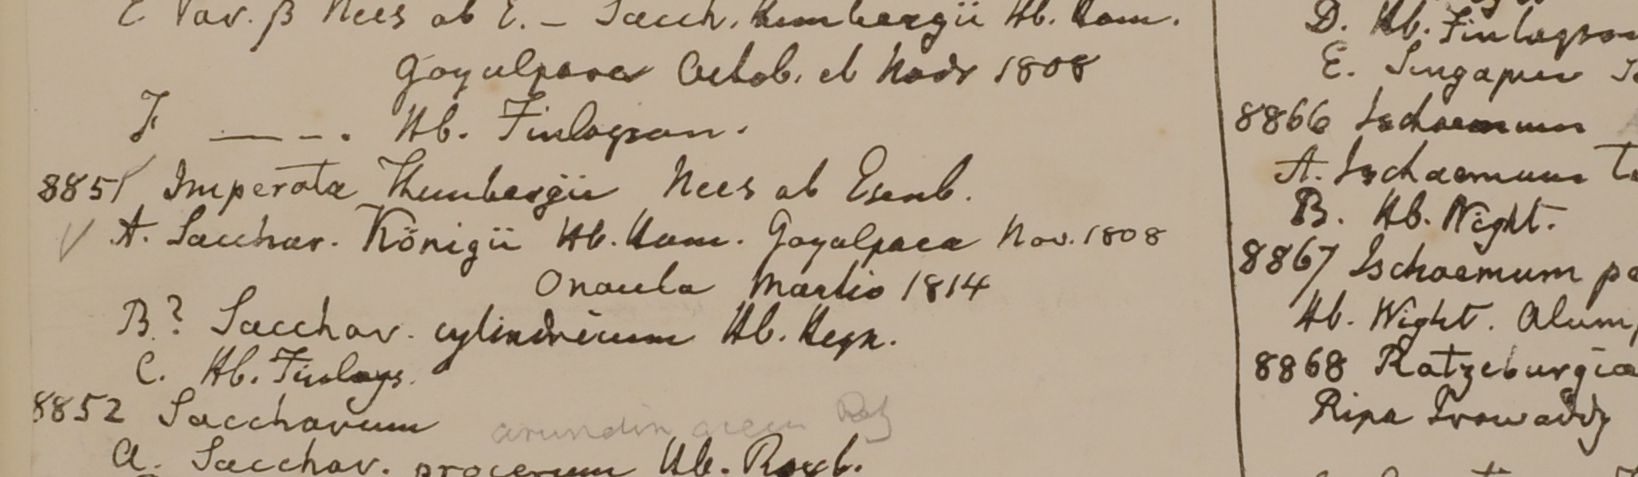 E Var. β Nees ab E. – Sacch. Thunbergii Hb. Ham.
Goyalpara Octob. et Novr 1808
F — – – . Hb. Finlayson.
8851 Imperata Thunbergii Nees ab Esenb.
√ A. Sacchar. Königii Hb. Ham. Goyalpara Nov. 1808
Onaula Martio 1814
B? Sacchar. cylindricum Hb. Heyn.
C. Hb. Finlays.
8852 Saccharum arundinaceum Retz
A. Sacchar. procerum Hb. Roxb.
D. Hb. Finlayson
E. Singapur
8866 Ischaemum
A. Ischaemum
B. Hb. Wight.
8867 Ischaemum
Hb. Wight.
8868 Ratzeburgia
Ripa Irawaddy